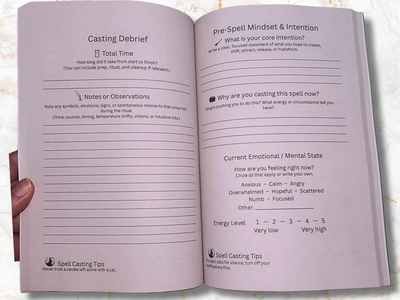 Casting Debrief
Total Time
How long did it take from start to finish?
(You can include prep, ritual, and cleanup if relevant.)
Notes or Observations
Note any symbols, emotions, signs, or spontaneous moments that occurred
during the ritual.
(Think: sounds, timing, temperature shifts, visions, or intuitive hits.)
Spell Casting Tips
Never trust a candle left alone with a cat.
Pre-Spell Mindset & Intention
What is your core intention?
Write a clear, focused statement of what you hope to create,
shift, attract, release, or transform.
Why are you casting this spell now?
What's pushing you to do this? What energy or circumstance led you
here?
Current Emotional / Mental State
How are you feeling right now?
Circle all that apply or write your own.
Anxious – Calm – Angry
Overwhelmed – Hopeful – Scattered
Numb – Focused
Other:
Energy Level 1 – 2 – 3 – 4 – 5
Very low Very high
Spell Casting Tips
spell calls for silence, turn off your
notifications first.